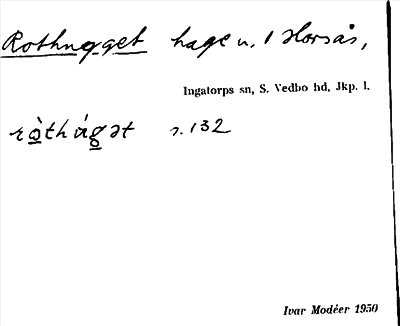 Rothugget hage u. 1 Horsås,
Ingatorps sn, S. Vedbo hd, Jkp. l.
ròthúgət s. 132
Ivar Modéer 1950